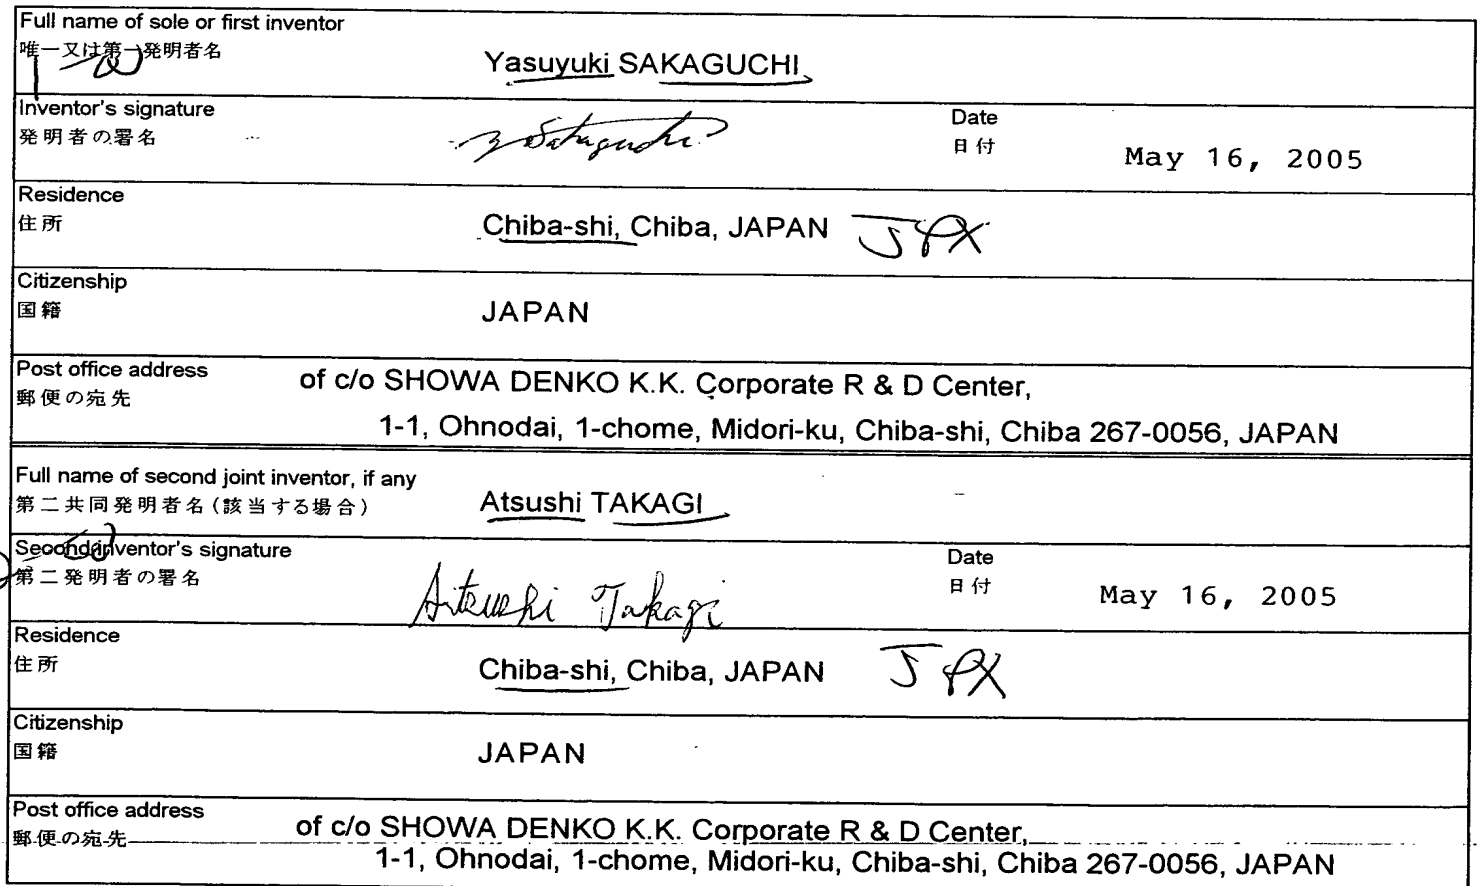 Full name of sole or first inventor
唯一又は第一発明者名
Yasuyuki SAKAGUCHI
Inventor's signature
発明者の署名
Date
日付
May 16, 2005
Residence
住所
Chiba-shi, Chiba, JAPAN JPX
Citizenship
国籍
JAPAN
Post office address
郵便の宛先
of c/o SHOWA DENKO K.K. Corporate R & D Center,
1-1, Ohnodai, 1-chome, Midori-ku, Chiba-shi, Chiba 267-0056, JAPAN
Full name of second joint inventor, if any
第二共同発明者名(該当する場合)
Atsushi TAKAGI
Second inventor's signature
第二発明者の署名
Atsushi Takagi
Date
日付
May 16, 2005
Residence
住所
Chiba-shi, Chiba, JAPAN JPX
Citizenship
国籍
JAPAN
Post office address
郵便の宛先
of c/o SHOWA DENKO K.K. Corporate R & D Center,
1-1, Ohnodai, 1-chome, Midori-ku, Chiba-shi, Chiba 267-0056, JAPAN